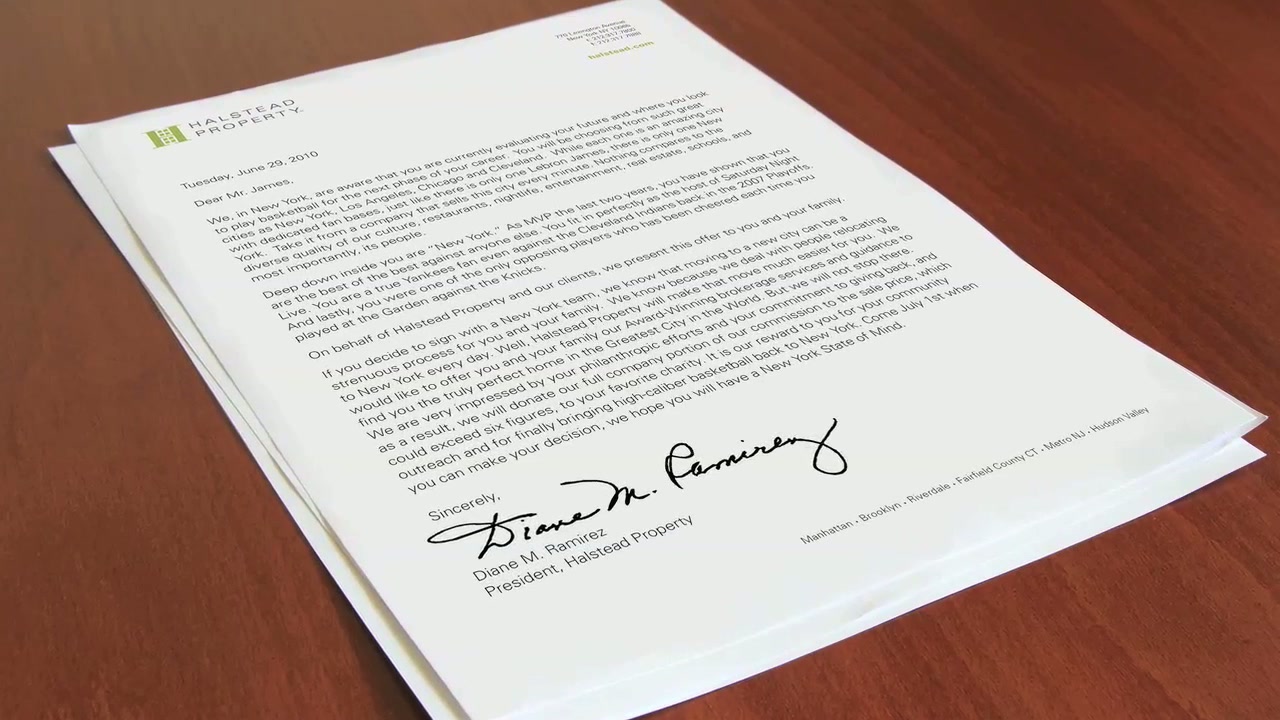 770 Lexington Avenue
New York NY 10065
halstead.com
HALSTEAD
PROPERTY
Tuesday, June 29, 2010
Dear Mr. James,
We, in New York, are aware that you are currently evaluating your future and where you look
to play basketball for the next phase of your career. You will be choosing from such great
cities as New York, Los Angeles, Chicago and Cleveland. While each one is an amazing city
with dedicated fan bases, just like there is only one Lebron James, there is only one New
York. Take it from a company that sells this city every minute. Nothing compares to the
diverse quality of our culture, restaurants, nightlife, entertainment, real estate, schools, and
most importantly, its people.
Deep down inside you are "New York." As MVP the last two years, you have shown that you
are the best of the best against anyone else. You fit in perfectly as the host of Saturday Night
Live. You are a true Yankees fan even against the Cleveland Indians back in the 2007 Playoffs.
And lastly, you were one of the only opposing players who has been cheered each time you
played at the Garden against the Knicks.
On behalf of Halstead Property and our clients, we present this offer to you and your family.
If you decide to sign with a New York team, we know that moving to a new city can be a
strenuous process for you and your family. We know because we deal with people relocating
to New York every day. Well, Halstead Property will make that move much easier for you. We
would like to offer you and your family our Award-Winning brokerage services and guidance to
find you the truly perfect home in the Greatest City in the World. But we will not stop there.
We are very impressed by your philanthropic efforts and your commitment to giving back, and
as a result, we will donate our full company portion of our commission to the sale price, which
could exceed six figures, to your favorite charity. It is our reward to you for your community
outreach and for finally bringing high-caliber basketball back to New York. Come July 1st when
you can make your decision, we hope you will have a New York State of Mind.
Sincerely,
Diane M. Ramirez
Diane M. Ramirez
President, Halstead Property
Manhattan • Brooklyn • Riverdale • Fairfield County CT • Metro NJ • Hudson Valley